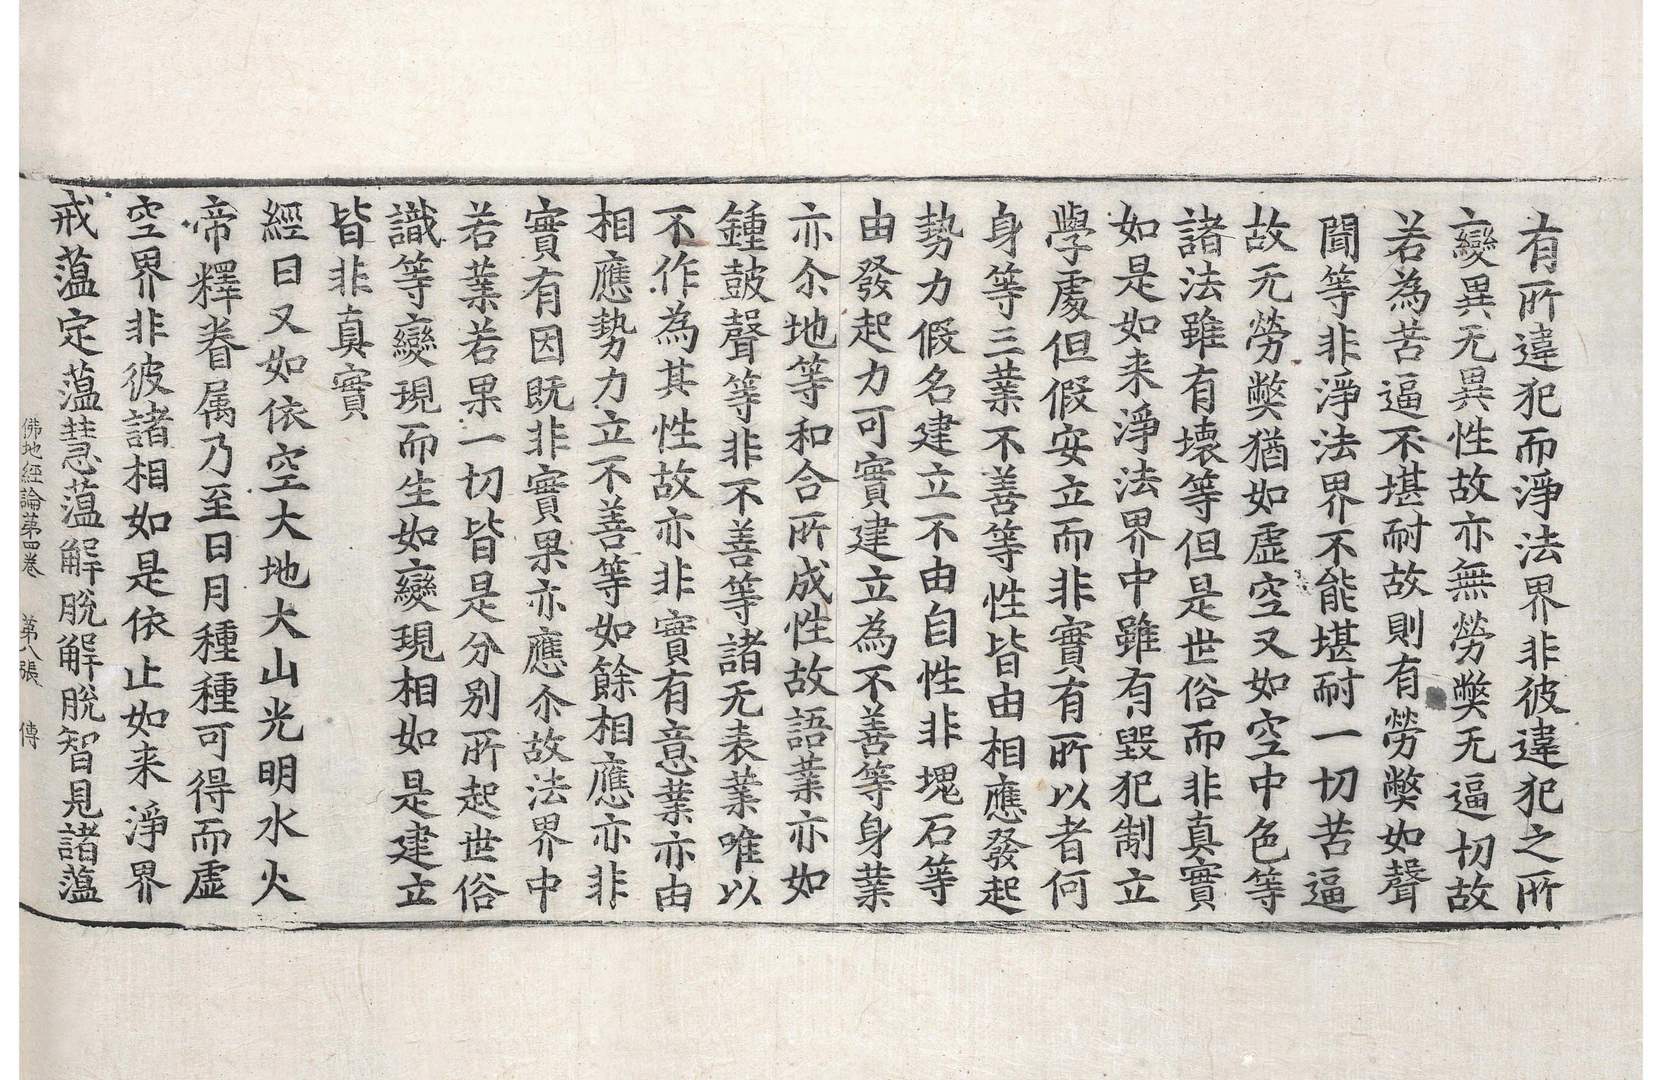 有所違犯而淨法界非彼違犯之所
變異无異性故亦無勞獘无逼切故
若為苦逼不堪耐故則有勞獘如聲
聞等非淨法界不能堪耐一切苦逼
故无勞獘猶如虛空又如空中色等
諸法雖有壞等但是世俗而非真實
如是如来淨法界中雖有毀犯制立
學處但假安立而非實有所以者何
身等三業不善等性皆由相應發起
勢力假名建立不由自性非塊石等
由發起力可實建立為不善等身業
亦尒地等和合所成性故語業亦如
鍾鼓聲等非不善等諸无表業唯以
不作為其性故亦非實有意業亦由
相應勢力立不善等如餘相應亦非
實有因既非實果亦應尒故法界中
若業若果一切皆是分別所起世俗
識等變現而生如變現相如是建立
皆非真實
經曰又如依空大地大山光明水火
帝釋眷属乃至日月種種可得而虛
空界非彼諸相如是依止如来淨界
戒薀定薀慧薀解脫解脫智見諸薀
佛地經論第四卷　第八張　傳